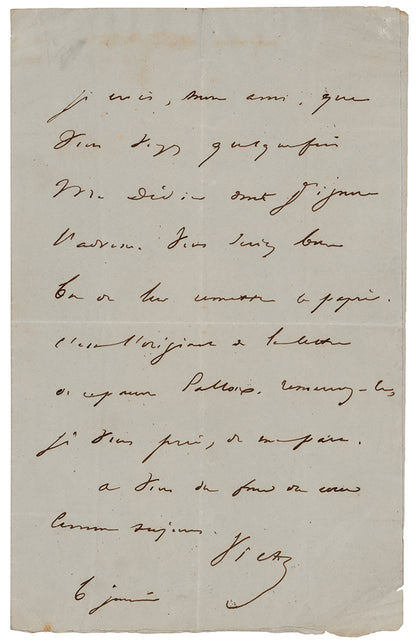 je crois, mon ami, que
vous voyez quelquefois
Mr Didier dont j'ignore
l'adresse. Vous seriez bien
bon de lui remettre ce papier.
c'est l'original de la lettre
de ce pauvre Remerciez-le,
je vous prie, de ma part.
à vous du fond du cœur
comme toujours.
Victor
6 janvier